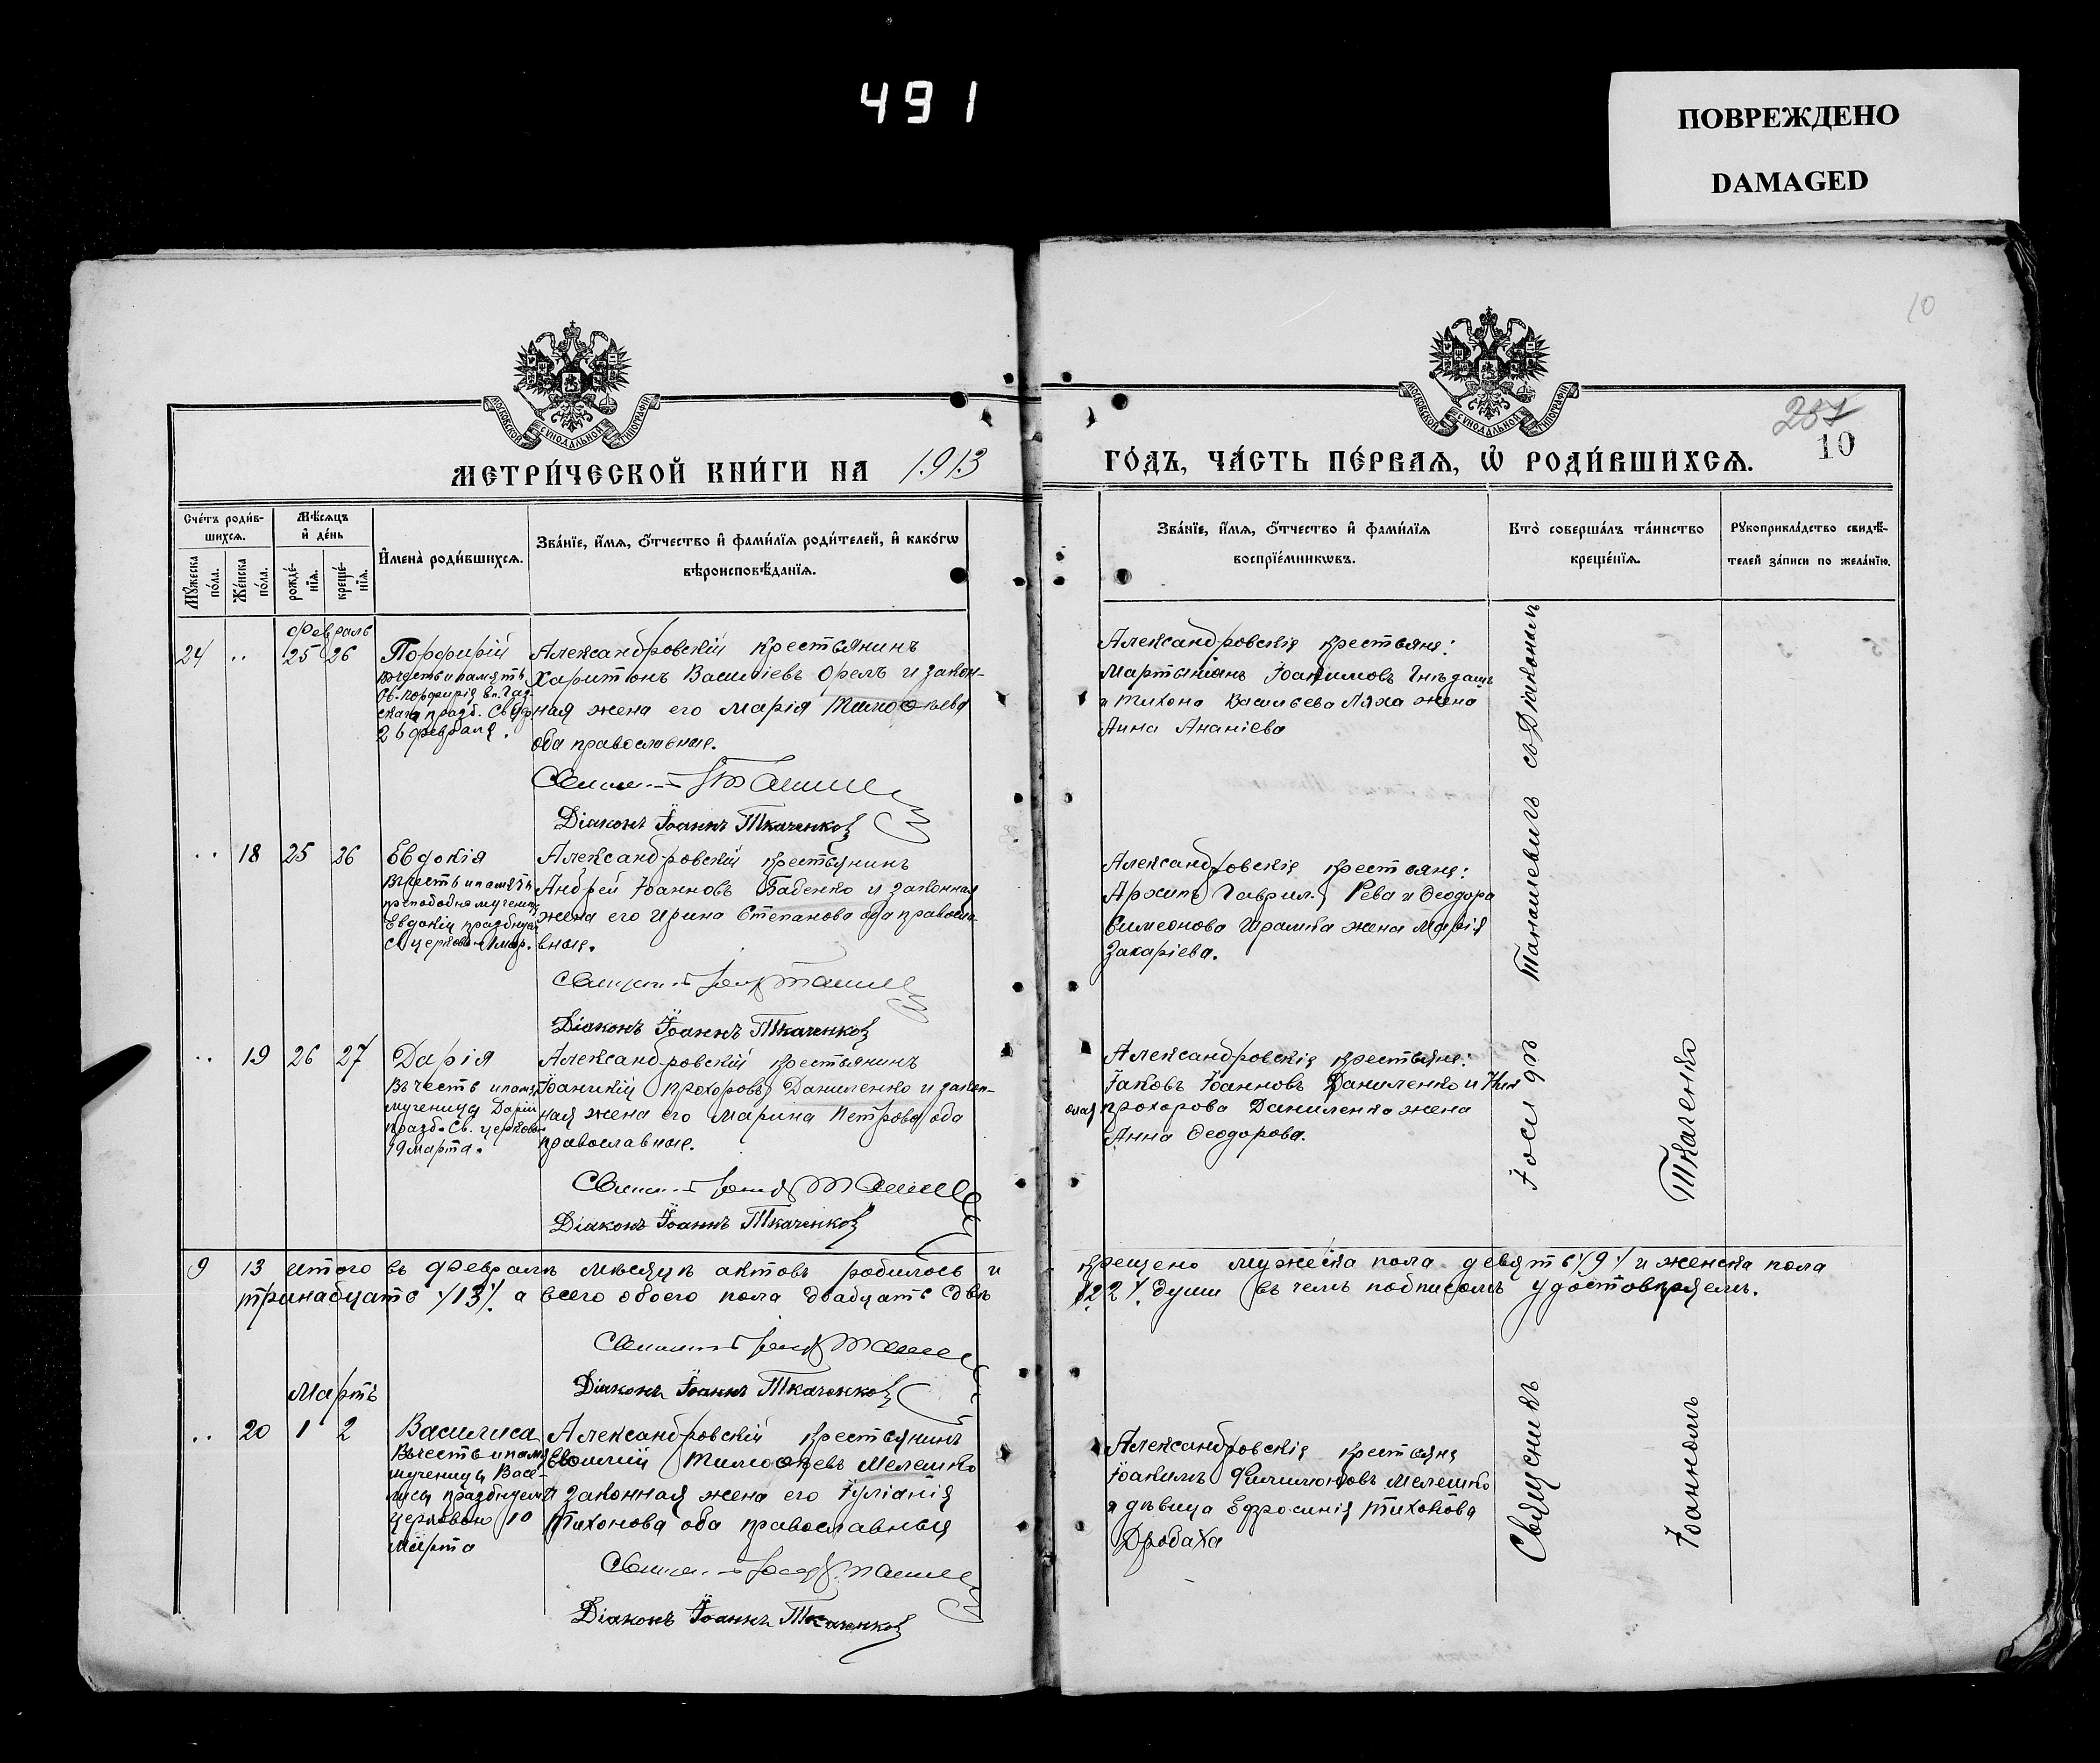 491
ПОВРЕЖДЕНО
DAMAGED
10
237
10
МОСКОВСКОЙ СѴНОДАЛЬНОЙ ТИПОГРАФІИ
МОСКОВСКОЙ СѴНОДАЛЬНОЙ ТИПОГРАФІИ
МЕТРИ́ЧЕСКОЙ КНИ́ГИ НА 1913
ГО́ДЪ, ЧА́СТЬ ПЕ́РВАѦ, Ѡ҆ РОДИ́ВШИХСѦ.
Сче́тъ роди́в-
шихсѧ.
Мꙋ́жеска по́ла.
Же́нска по́ла.
Мѣ́сѧцъ
и҆ де́нь
рожде́-
нїѧ.
креще́-
нїѧ.
И҆мена̀ роди́вшихсѧ.
Зва́нїе, и҆́мѧ, ѻ҆́тчество и҆ фами́лїѧ роди́телей, и҆ како́гѡ
вѣроисповѣ́данїѧ.
Зва́нїе, и҆́мѧ, ѻ҆́тчество и҆ фами́лїѧ
воспрїе́мникѡвъ.
Кто̀ соверша́лъ та́инство
креще́нїѧ.
Рꙋкоприкла́дство свидѣ́-
телей за́писи по жела́нїю.
Февраль
24 .. 25 26
Порфирій
въ честь и память
Св. Порфирія еп. Газ-
скаго празд. Св. Цер
26 февраля.
Александровскій крестьянинъ
Харитонъ Василіевъ Орелъ и закон-
ная жена его Марія Тимоѳеева
оба православные.
Діаконъ Іоаннъ Ткаченко
Александровскія крестьяне:
Мартиніанъ Іоакимовъ Гнѣдашъ
и Тихона Васильева Ляха жена
Анна Ананіева
.. 18 25 26
Евдокія
Въ честь и память
преподобномученицы
Евдокіи празднуем
Св церковью 1 мар.
Александровскій крестьянинъ
Андрей Іоанновъ Бабенко и законная
жена его Ирина Степанова оба правосла-
вные.
Діаконъ Іоаннъ Ткаченко
Александровскія крестьяне:
Архипъ Гаврил. Рева и Ѳеодора
Симеонова Шрамка жена Марія
Захаріева.
.. 19 26 27
Дарія
Въ честь и памят
мученицы Даріи
празд. Св. церковью
19 Марта.
Александровскій крестьянинъ
Іоанникій Прохоровъ Даниленко и закон-
ная жена его Марина Петрова оба
православные.
Діаконъ Іоаннъ Ткаченко
Александровскія крестьяне:
Іаковъ Іоанновъ Даниленко и Ник
олая Прохорова Даниленка жена
Анна Ѳеодорова.
9 13 Итого въ Февралѣ мѣсяцѣ актовъ родилось и
крещено мужеска пола девять /9/ и женска пола
тринадцать /13/. а всего обоего пола двадцать двѣ
/22/. души въ чемъ подписомъ удостовѣряемъ.
Діаконъ Іоаннъ Ткаченко
Мартъ
.. 20 1 2
Василиса
Въ честь и пам
мученицы Васи-
лисы празднуем
церковью 10
Марта
Александровскій крестьянинъ
Тимоѳеевъ Мелешко
и законная жена его Іуліанія
Тихонова оба православныя
Діаконъ Іоаннъ Ткаченко
Александровскія крестьяне
Іоакимъ Филимоновъ Мелешко
и дѣвица Ефросинія Тихонова
Дробаха
Священникъ Іосифъ Танашевичъ съ Діакономъ
Іоанномъ Ткаченко